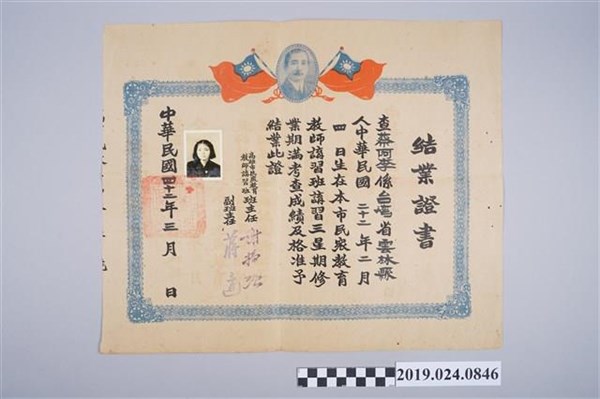 結業證書
查蔡阿李係台灣省雲林縣
人中華民國二十二年二月
四日生在本市民衆教育
教師講習班講習三星期修
業期滿考查成績及格准予
結業此證
高雄市民衆教育
教師講習班班主任
副班主任
中華民國四十三年三月 日
2019.024.0846